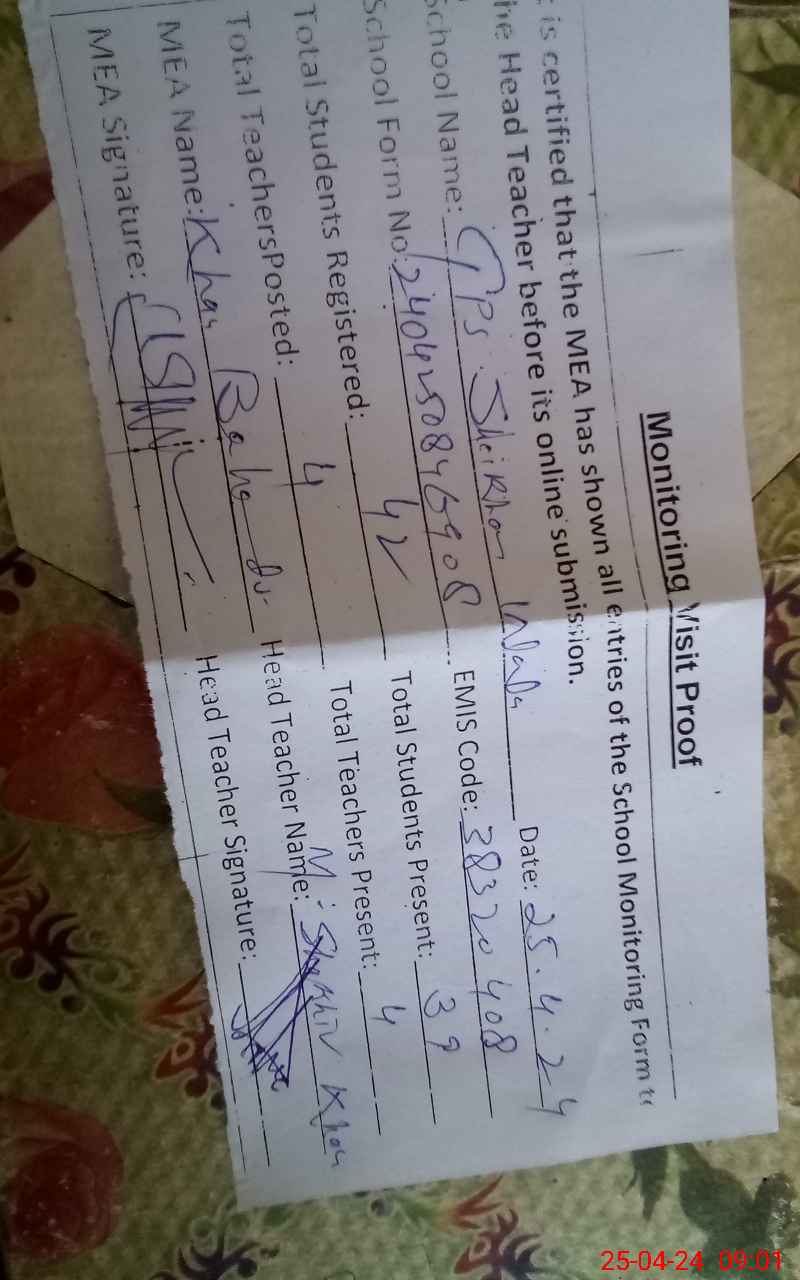 Monitoring Visit Proof
is certified that the MEA has shown all entries of the School Monitoring Form to
he Head Teacher before its online submission.
School Name: GPS Sheikhan Wala Date: 25.4.24
School Form No: 2404250846908 EMIS Code: 38320408
Total Students Registered: 42 Total Students Present: 39
Total TeachersPosted: 4 Total Teachers Present: 4
MEA Name: Khan Bahadur Head Teacher Name: M. Khan
MEA Signature: Head Teacher Signature:
25-04-24 09:01